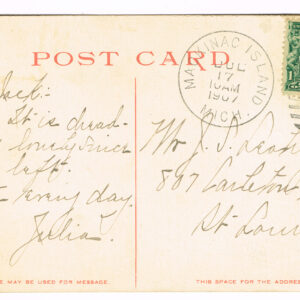 POST CARD
MACKINAC ISLAND.
JUL
17
10AM
1907
MICH.
It is dread-
lonely since
left.
every day.
Julia.
Mr. J. S.
807 Carleton
St. Lou
E MAY BE USED FOR MESSAGE.
THIS SPACE FOR THE ADDRE